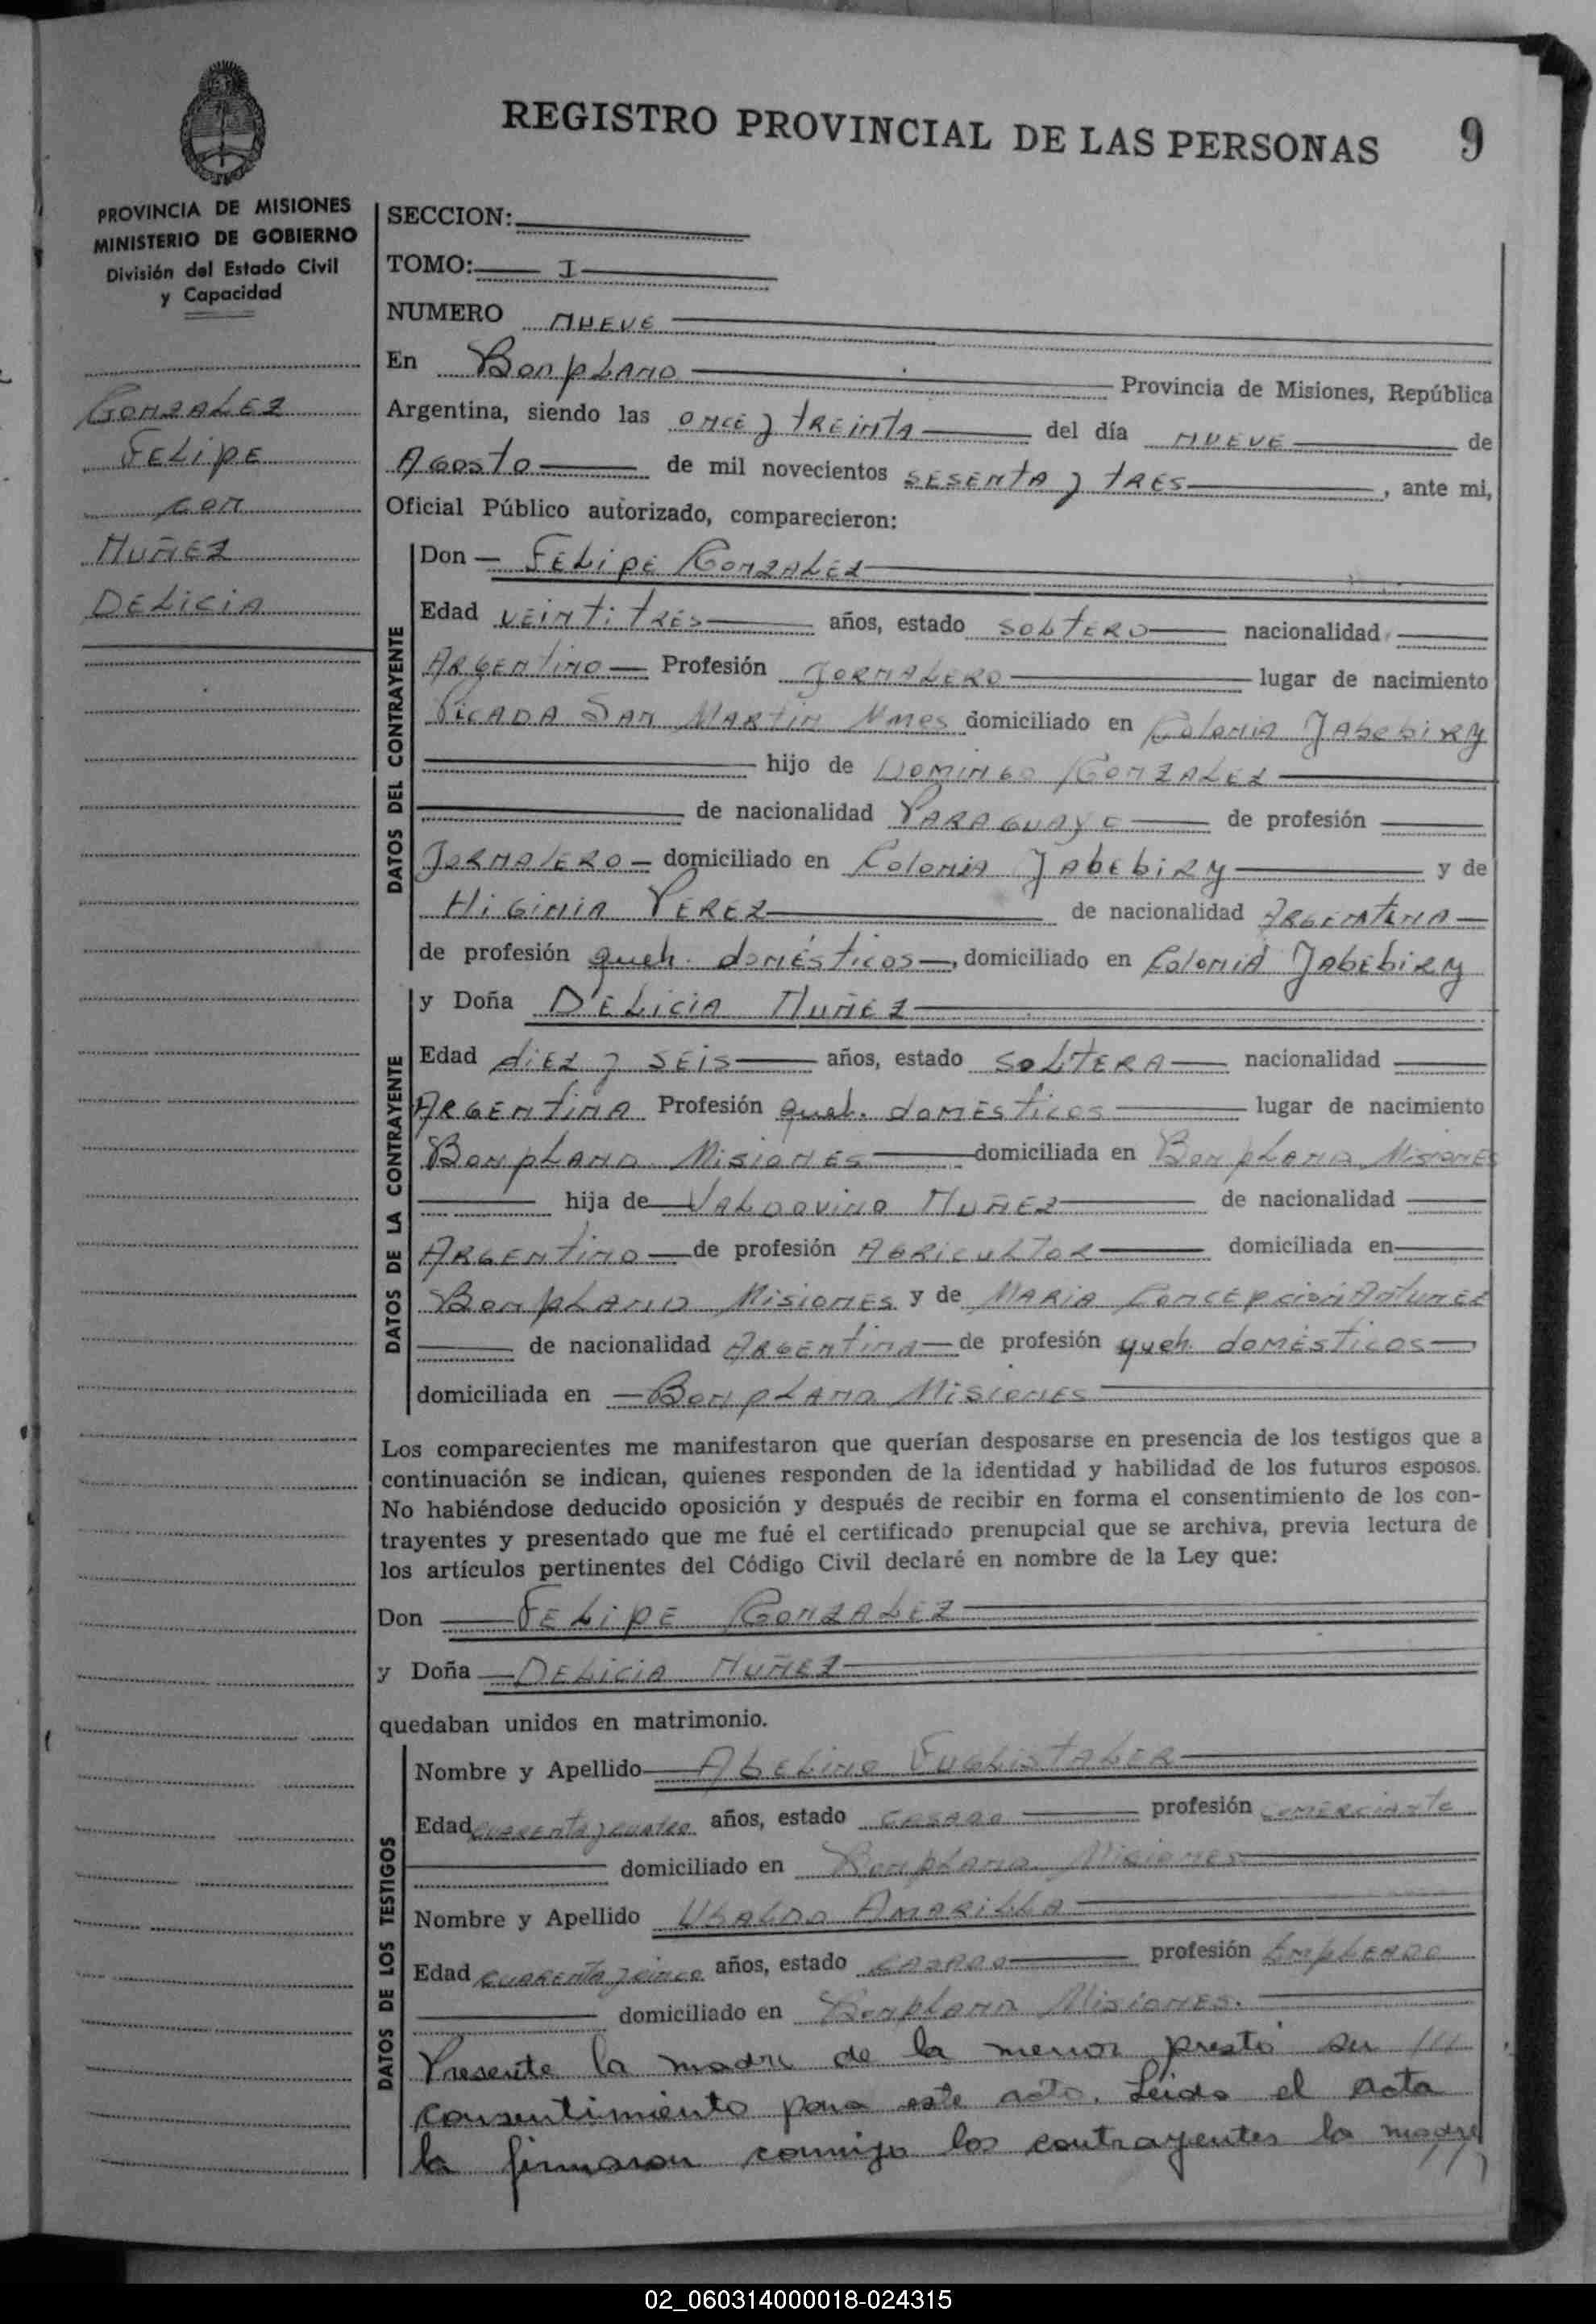 REGISTRO PROVINCIAL DE LAS PERSONAS 9
PROVINCIA DE MISIONES
MINISTERIO DE GOBIERNO
División del Estado Civil
y Capacidad
GONZALEZ
FELIPE
CON
NUÑEZ
DELICIA
SECCION:
TOMO: I
NUMERO NUEVE
En BONPLAND Provincia de Misiones, República
Argentina, siendo las ONCE y TREINTA del día NUEVE de
AGOSTO de mil novecientos SESENTA y TRES, ante mi,
Oficial Público autorizado, comparecieron:
DATOS DEL CONTRAYENTE
Don FELIPE GONZALEZ
Edad VEINTITRES años, estado SOLTERO nacionalidad
ARGENTINO Profesión JORNALERO lugar de nacimiento
PICADA SAN MARTIN Mnes domiciliado en Colonia JABEBIRY
hijo de DOMINGO GONZALEZ
de nacionalidad PARAGUAYO de profesión
JORNALERO domiciliado en Colonia JABEBIRY y de
HIGINIA PEREZ de nacionalidad ARGENTINA
de profesión queh. domésticos, domiciliado en Colonia JABEBIRY
DATOS DE LA CONTRAYENTE
y Doña DELICIA NUÑEZ
Edad DIEZ y SEIS años, estado SOLTERA nacionalidad
ARGENTINA Profesión queh. domésticos lugar de nacimiento
BONPLAND MISIONES domiciliada en BONPLAND MISIONES
hija de VALDOVINO NUÑEZ de nacionalidad
ARGENTINO de profesión AGRICULTOR domiciliada en
BONPLAND MISIONES y de MARIA CONCEPCION ANTUNEZ
de nacionalidad ARGENTINA de profesión queh. domésticos
domiciliada en BONPLAND MISIONES
Los comparecientes me manifestaron que querían desposarse en presencia de los testigos que a
continuación se indican, quienes responden de la identidad y habilidad de los futuros esposos.
No habiéndose deducido oposición y después de recibir en forma el consentimiento de los con-
trayentes y presentado que me fué el certificado prenupcial que se archiva, previa lectura de
los artículos pertinentes del Código Civil declaré en nombre de la Ley que:
Don FELIPE GONZALEZ
y Doña DELICIA NUÑEZ
quedaban unidos en matrimonio.
DATOS DE LOS TESTIGOS
Nombre y Apellido ABELINO FUGLISTALER
Edad CUARENTA y CUATRO años, estado CASADO profesión COMERCIANTE
domiciliado en BONPLAND MISIONES
Nombre y Apellido UBALDO AMARILLA
Edad CUARENTA y CINCO años, estado CASADO profesión EMPLEADO
domiciliado en BONPLAND MISIONES.
Presente la madre de la menor prestó su ///
consentimiento para este acto. Leida el acta
la firmaron conmigo los contrayentes la madre
///
02_060314000018-024315